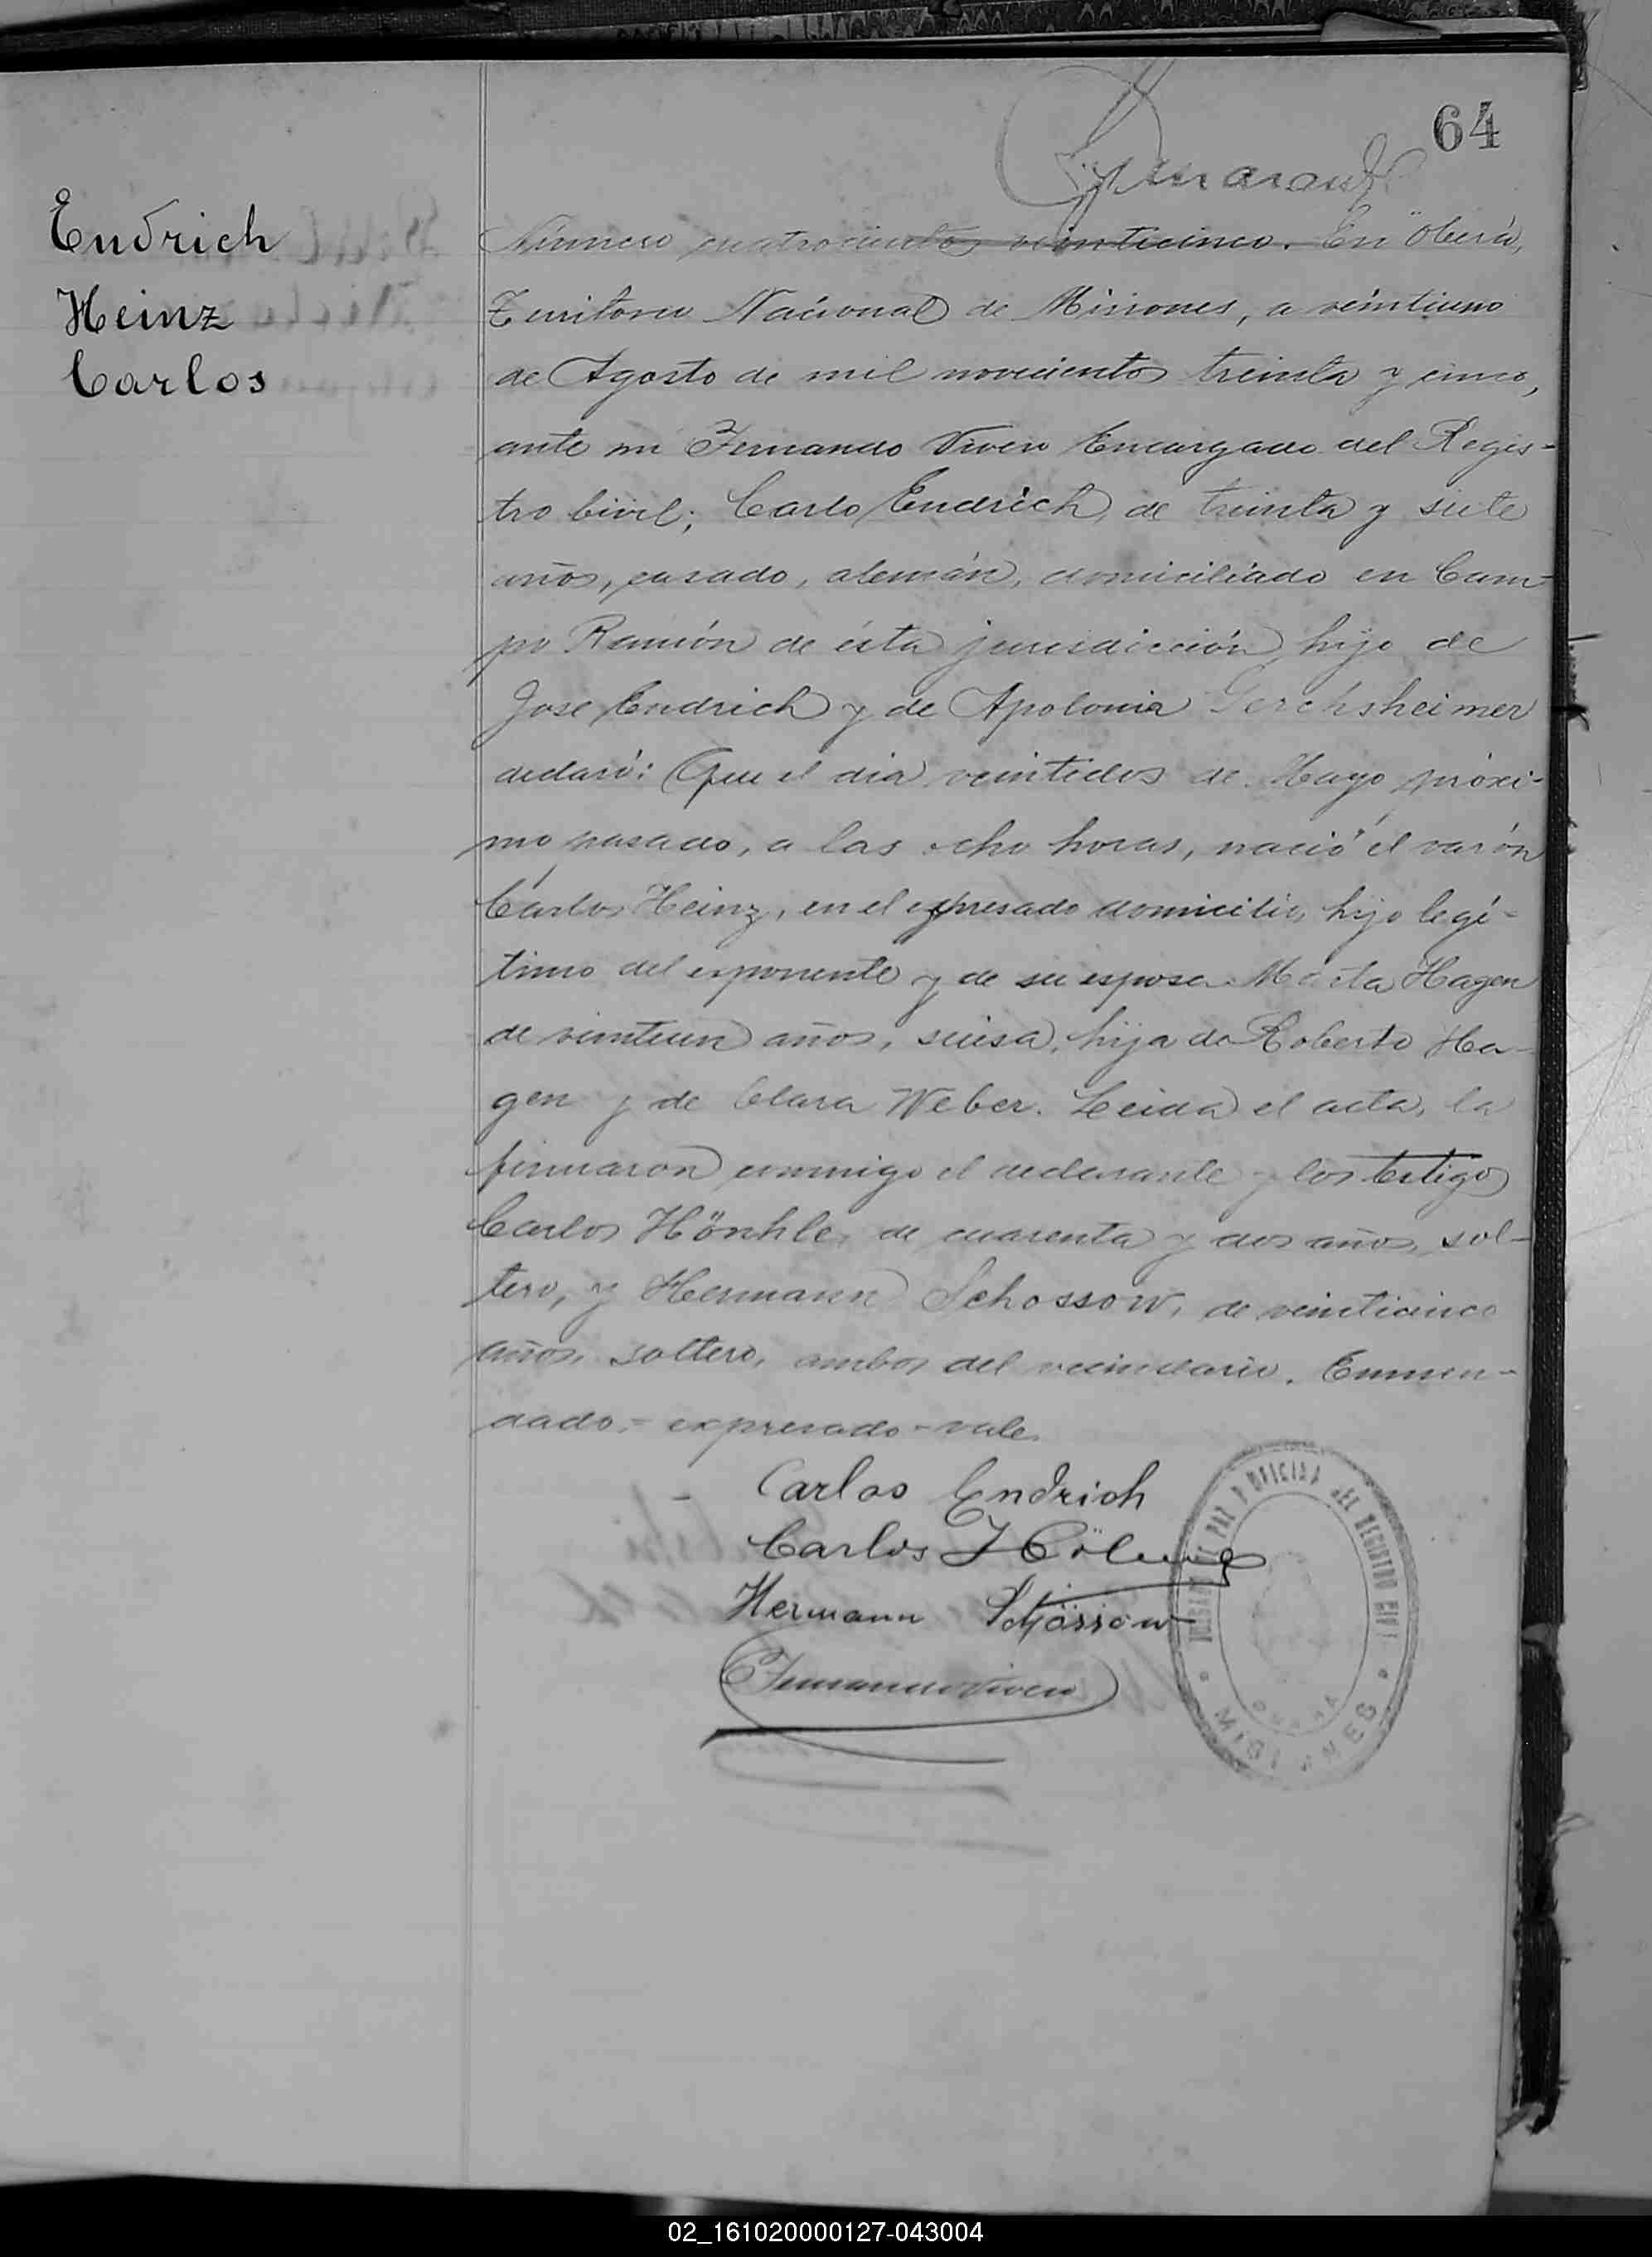 64
Endrich
Heinz
Carlos
Número cuatrocientos veinticinco. En Oberá,
Territorio Nacional de Misiones, a veintiuno
de Agosto de mil novecientos treinta y cinco,
ante mi Fernando Vivero Encargado del Regis-
tro Civil; Carlo Endrich, de treinta y siete
años, casado, alemán, domiciliado en Cam-
po Ramón de ésta jurisdicción, hijo de
Jose Endrich y de Apolonia Gerchsheimer
declaró: Que el dia veintidos de Mayo próxi-
mo pasado, a las ocho horas, nació el varón
Carlos Heinz, en el expresado domicilio, hijo legí-
timo del exponente y de su esposa Marta Hagen
de veintiun años, suisa, hija de Roberto Ha-
gen y de Clara Weber. Leida el acta, la
firmaron conmigo el declarante y los testigos
Carlos Hönhle, de cuarenta y dos años, sol-
tero, y Hermann Schossow, de veinticinco
años, soltero, ambos del vecindario. Enmen-
dado.- expresado - vale.
Carlos Endrich
Carlos
Hermann Schössow
Fernando Vivero
JUZGADO DE PAZ Y OFICINA DEL REGISTRO CIVIL
MISIONES
02_161020000127-043004